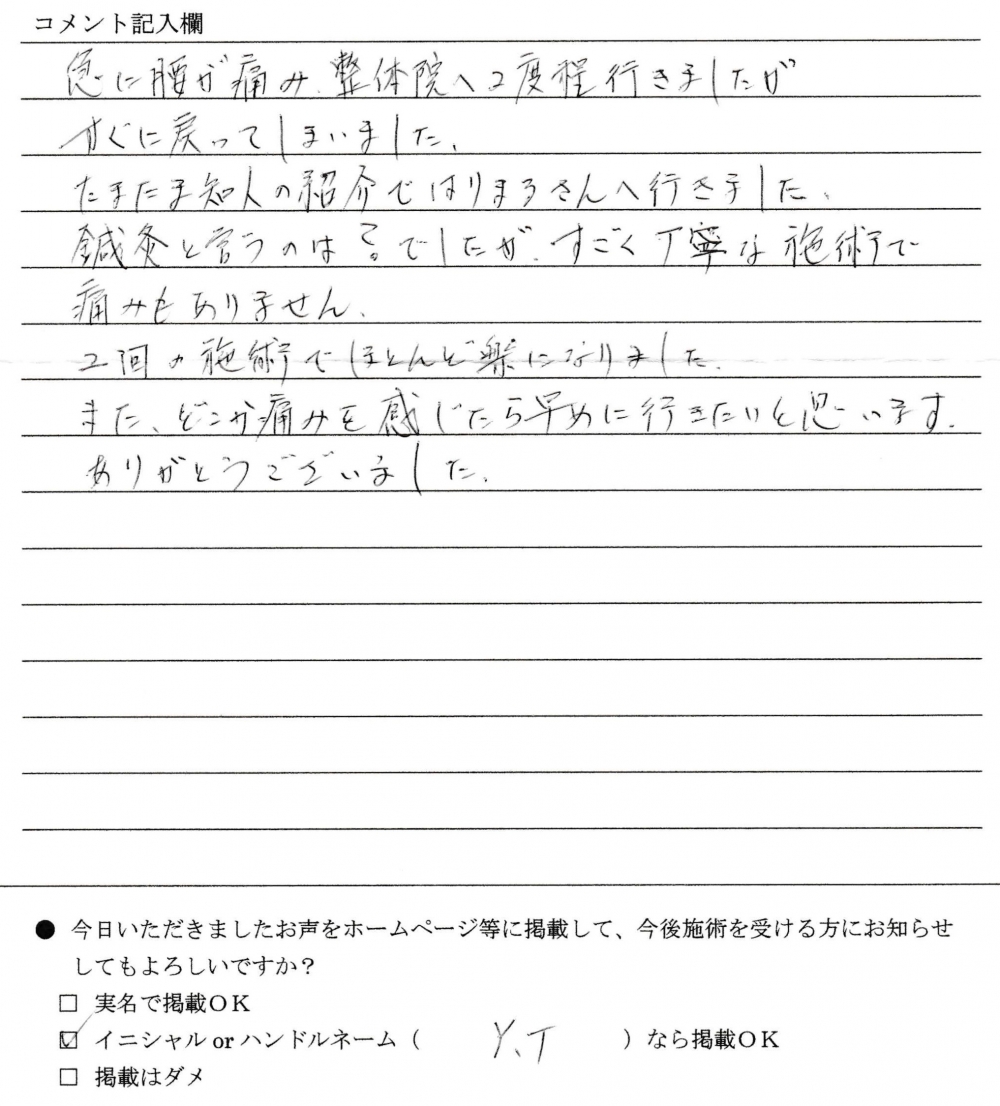 コメント記入欄
急に腰が痛み、整体院へ2度程行きましたが
すぐに戻ってしまいました、
たまたま知人の紹介ではりまるさんへ行きました、
鍼灸と言うのは?でしたが、すごく丁寧な施術で
痛みもありません、
2回の施術でほとんど楽になりました、
また、どこか痛みを感じたら早めに行きたいと思います.
ありがとうございました、
● 今日いただきましたお声をホームページ等に掲載して、今後施術を受ける方にお知らせ
してもよろしいですか?
□ 実名で掲載OK
☑ イニシャル or ハンドルネーム( Y、T )なら掲載OK
□ 掲載はダメ